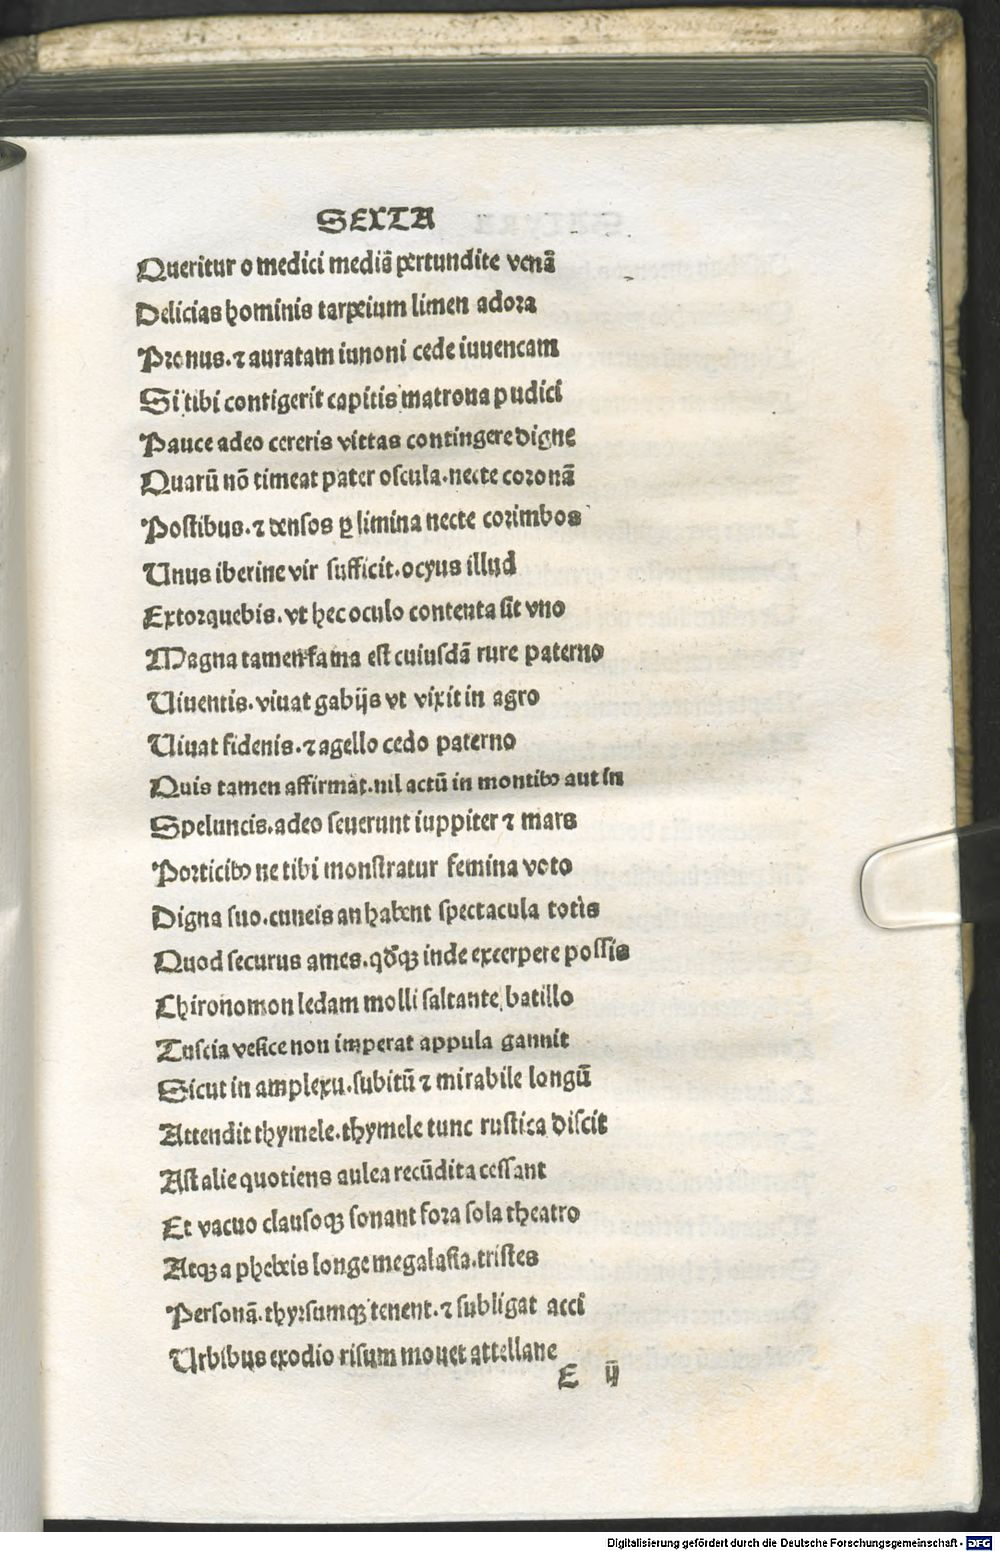 SEXTA
Queritur o medici mediā pertundite venā
Delicias hominis tarpeium limen adora
Pronus. ⁊ auratam iunoni cede iuuencam
Si tibi contigerit capitis matrona pudici
Pauce adeo cereris vittas contingere digne
Quarū nō timeat pater oscula. necte coronā
Postibus. ⁊ densos ꝑ limina necte corimbos
Unus iberine vir sufficit. ocyus illud
Extorquebis. vt hec oculo contenta sit vno
Magna tamen fama est cuiusdā rure paterno
Uiuentis. viuat gabijs vt vixit in agro
Uiuat fidenis. ⁊ agello cedo paterno
Quis tamen affirmat. nil actū in montibꝰ aut in
Speluncis. adeo seuerunt iuppiter ⁊ mars
Porticibꝰ ne tibi monstratur femina voto
Digna suo. cuneis an habent spectacula totis
Quod securus ames. qđqꝫ inde excerpere possis
Chironomon ledam molli saltante batillo
Tuscia vesice non imperat appula gannit
Sicut in amplexu. subitū ⁊ mirabile longū
Attendit thymele. thymele tunc rustica discit
Ast alie quotiens aulea recūdita cessant
Et vacuo clausoqꝫ sonant fora sola theatro
Atqꝫ a phebeis longe megalasia. tristes
Personā. thyrsumqꝫ tenent. ⁊ subligat acci
Urbibus exodio risum mouet attellane
E ij
Digitalisierung gefördert durch die Deutsche Forschungsgemeinschaft - DFG